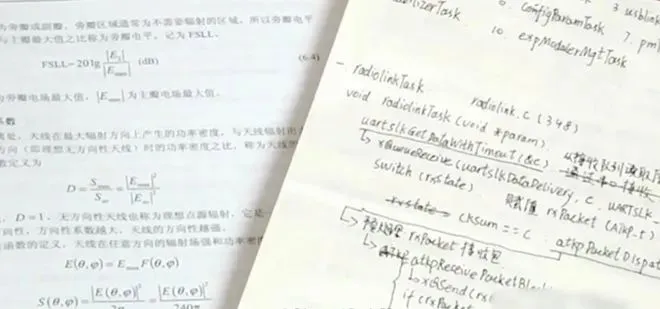 为旁瓣或副瓣，旁瓣区域通常为不需要辐射的区域，所以旁瓣电平
与主瓣最大值之比称为旁瓣电平，记为 FSLL。
FSLL=20lg |E₂| / |Emax| (dB) (6.4)
为旁瓣电场最大值，|Emax| 为主瓣电场最大值。
系数
是，天线在最大辐射方向上产生的功率密度，与天线辐射
方向（即理想无方向性天线）时的功率密度之比，称为天线的
数定义为
D = Smax / Sav = |Emax|² / |Eav|²
，D=1，无方向性天线也称为理想点源辐射，它是
向性，方向性系数越大，天线的方向性越强。
函数的定义，天线在任意方向的辐射场强和功率密
E(θ,φ) = Emax F(θ,φ)
S(θ,φ) = |E(θ,φ)|² / 2η = |E(θ,φ)|² / 240π
lizerTask
6. configParamTask
3. usblink
7. pm
10. expModuleMgtTask
- radiolinkTask radiolink.c (348)
void radiolinkTask (void *param).
uartslkGetDataWithTimeout (&c)
xQueueReceive (uartslkDataDelivery, c, UARTSLK
switch (rxState) 赋值 rxPacket (atkp_t)
rxstate cksum == c atkpPacketDispat
rxPacket 接收包
atkpReceivePacketBloc
xQSend (rx
if (rxPacket